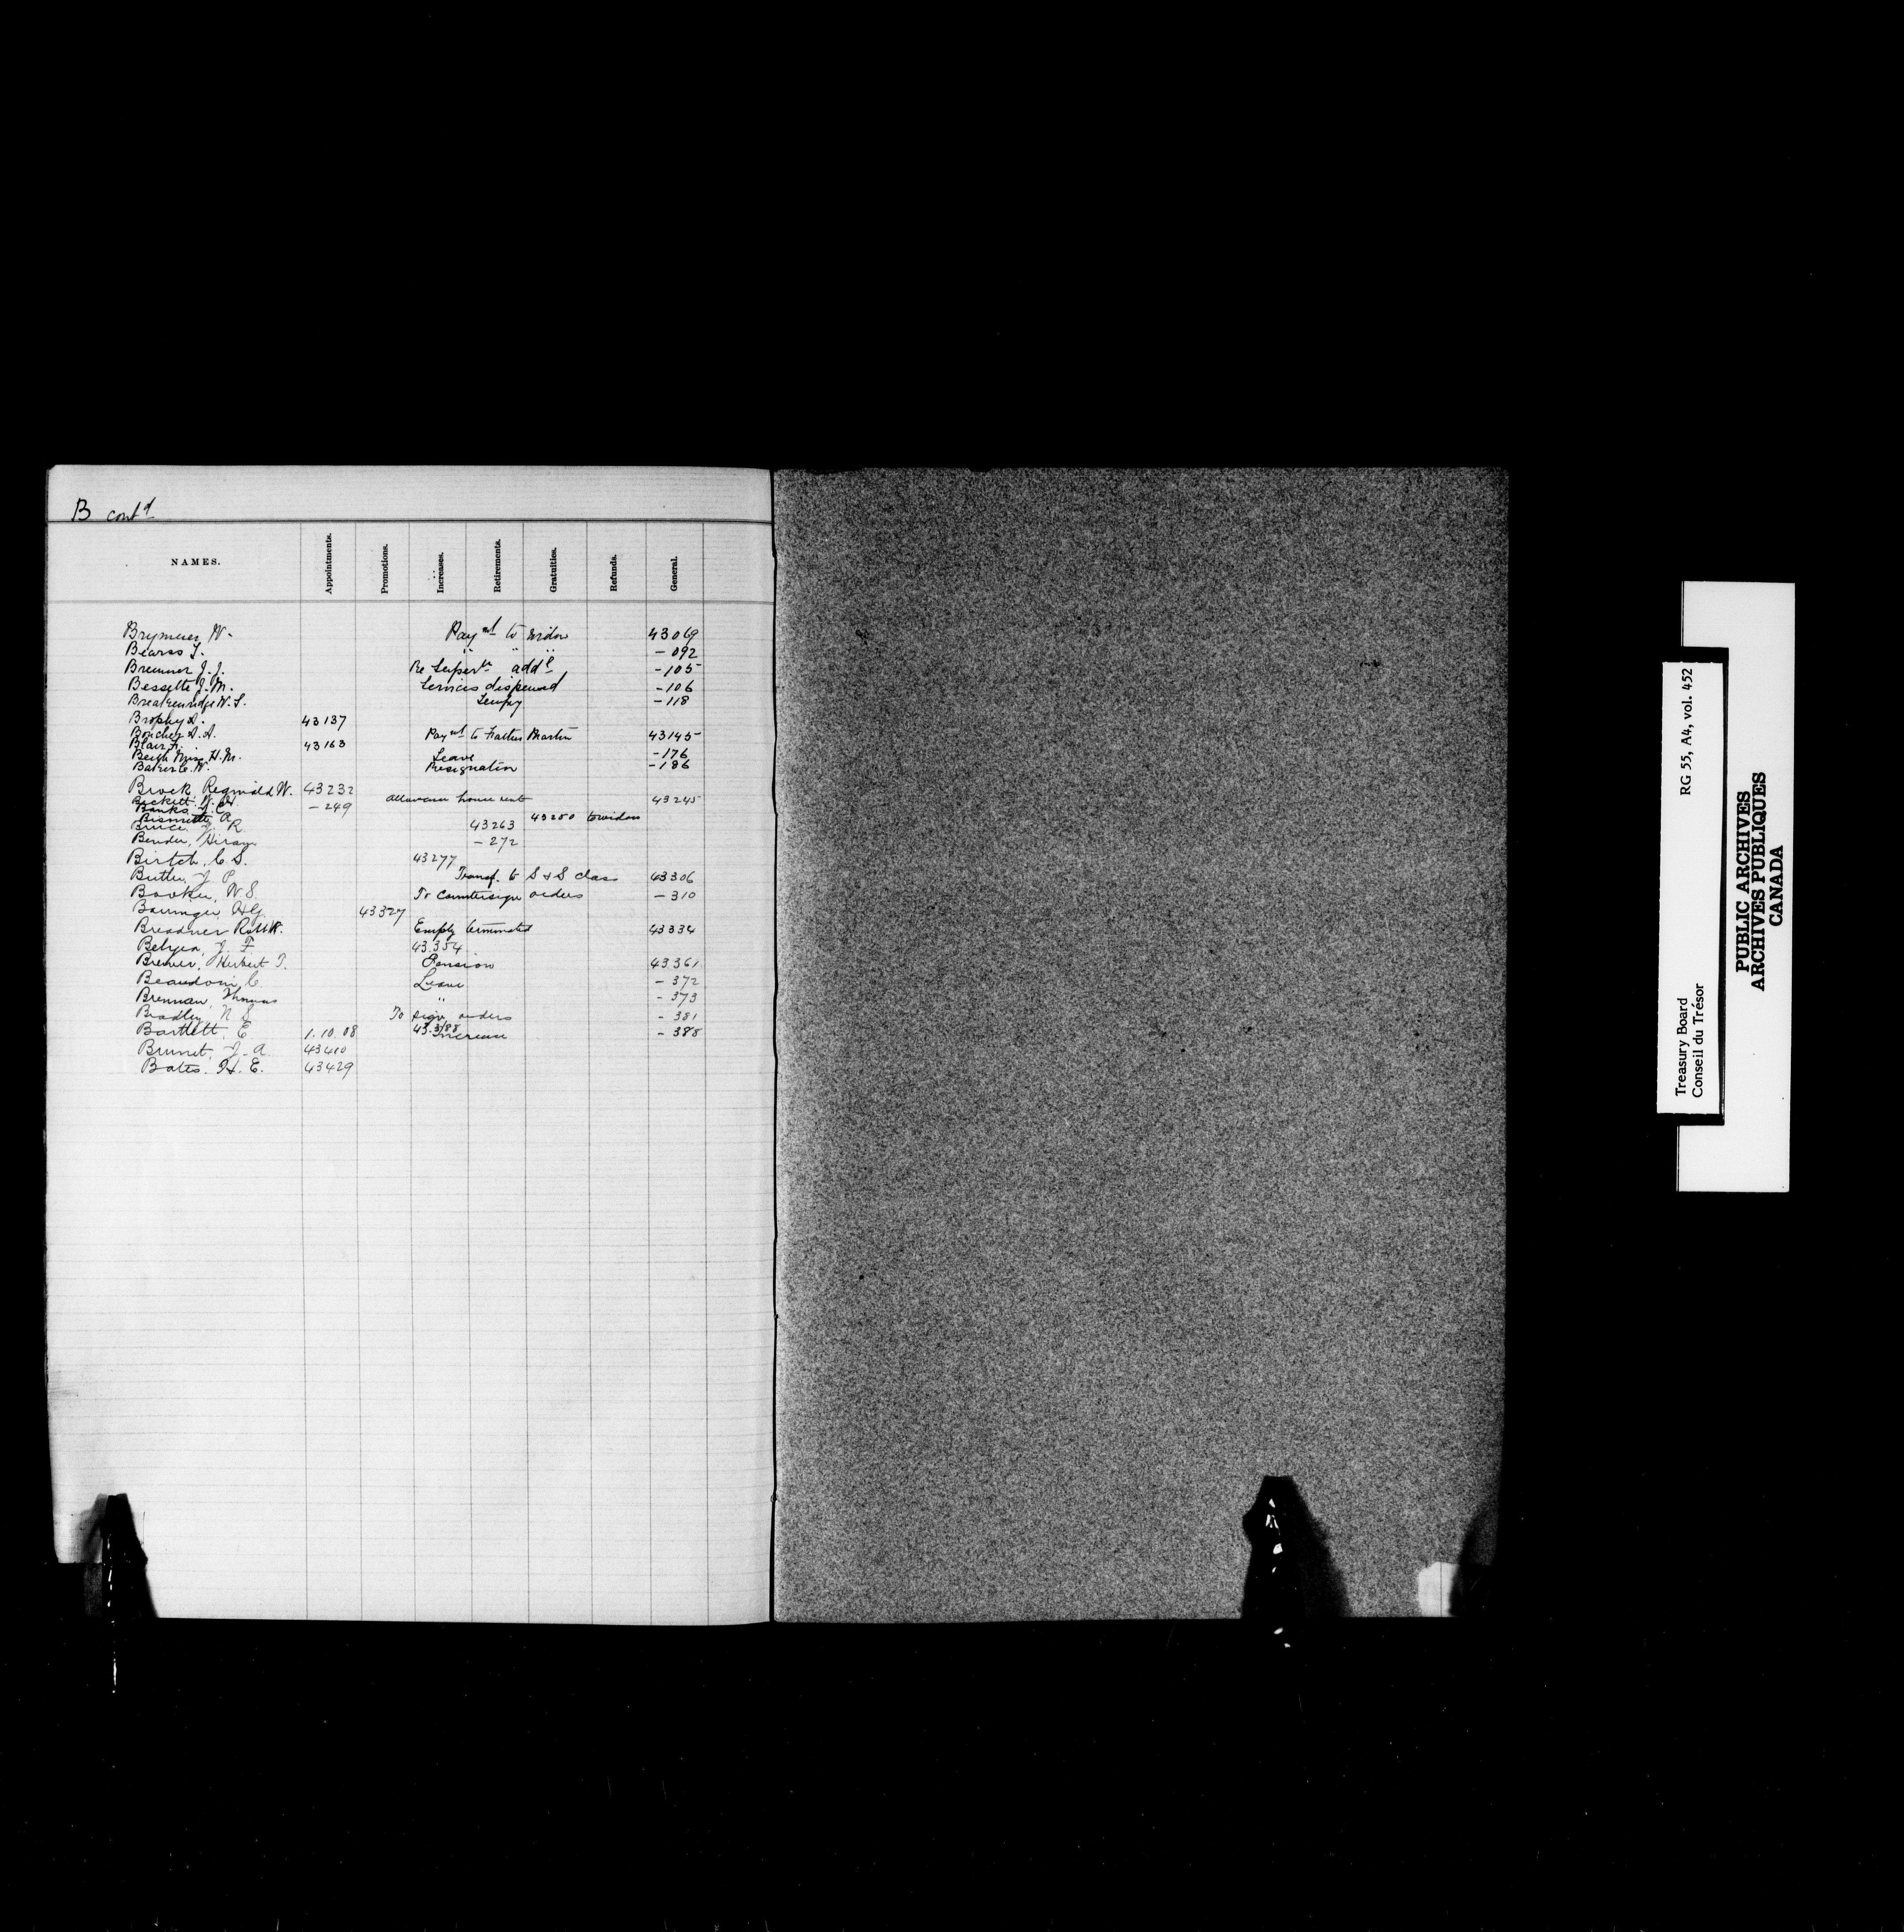 B cont'd
NAMES. Appointments. Promotions. Increases. Retirements. Gratuities. Refunds. General.
Brymner, W. Paymt to widow 43069
Bearss " " " - 092
Bremner J. J. Re Superte addl - 105
Bessette J. M. Services dispensed - 106
Breakenridge W. S. - 118
Brophy A. 43137
Boucher A. A. Paymt to Father Martin 43145
Blair F. 43163
Beith Miss H. M. Leave - 176
Baker C. W. Resignation - 186
Brock, Reginald W. 43232
Beckett, W. H. Allowance house rent 43245
Banks, J. C. - 249
Bissonette, A 43250 to widow
Bruce, J. R 43263
Bender, Hiram - 272
Birtch, C. S. 43277
Butler, J P. Transf. to S & S class 43306
Booker, W S. To Countersign orders - 310
Barringer, 43327
Breadner Robt K. Emply terminated 43334
J. F 43.354
Brewer, Herbert T. Pension 43361
Beaudoin, C Leave - 372
Brennan, Thomas " - 373
Bradley, N S To sign orders - 381
Bartlett, E 1.10.08 43.388 Increase - 388
Brunet, J. A 43410
Bates, H. E. 43429
Treasury Board RG 55, A4, vol. 452
Conseil du Trésor
PUBLIC ARCHIVES
ARCHIVES PUBLIQUES
CANADA